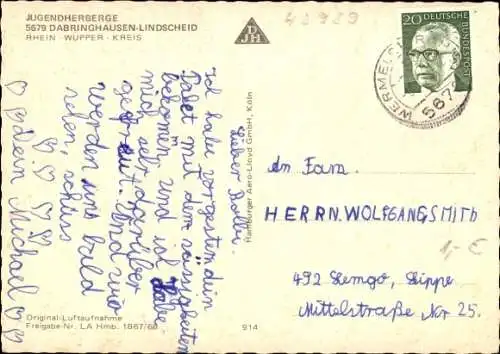 JUGENDHERBERGE
5679 DABRINGHAUSEN-LINDSCHEID
RHEIN - WUPPER - KREIS
DJH
20
DEUTSCHE BUNDESPOST
WERMELS
567
Lieber
Ich habe vorgestern dein
Paket mit den süssigkeiten
bekommen und ich habe
mich sehr darüber
gefreut. Und wir
werden uns bald
sehen, schüss
dein Michael
Hamburger Aero-Lloyd GmbH, Köln
An Fam.
HERRN.WOLFGANGSMITH
492 Lemgo, Lippe
Mittelstraße Nr 25.
1,- €
Original-Luftaufnahme
Freigabe-Nr. LA Hmb. 1867/68
914